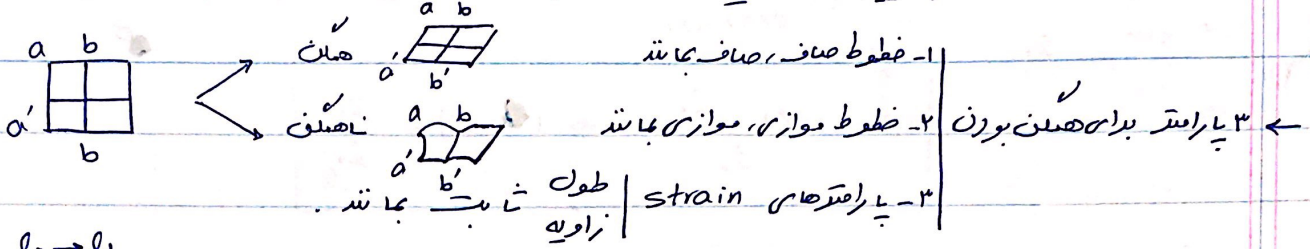 ← ۳ پارامتر برای همگن بودن
۱- خطوط صاف، صاف بمانند
۲- خطوط موازی، موازی بمانند
۳- پارامترهای strain | طول زاویه ثابت بمانند.
همگن
a b
a' b'
ناهمگن
a b
a' b'
a b
a' b
l₀ → l₁